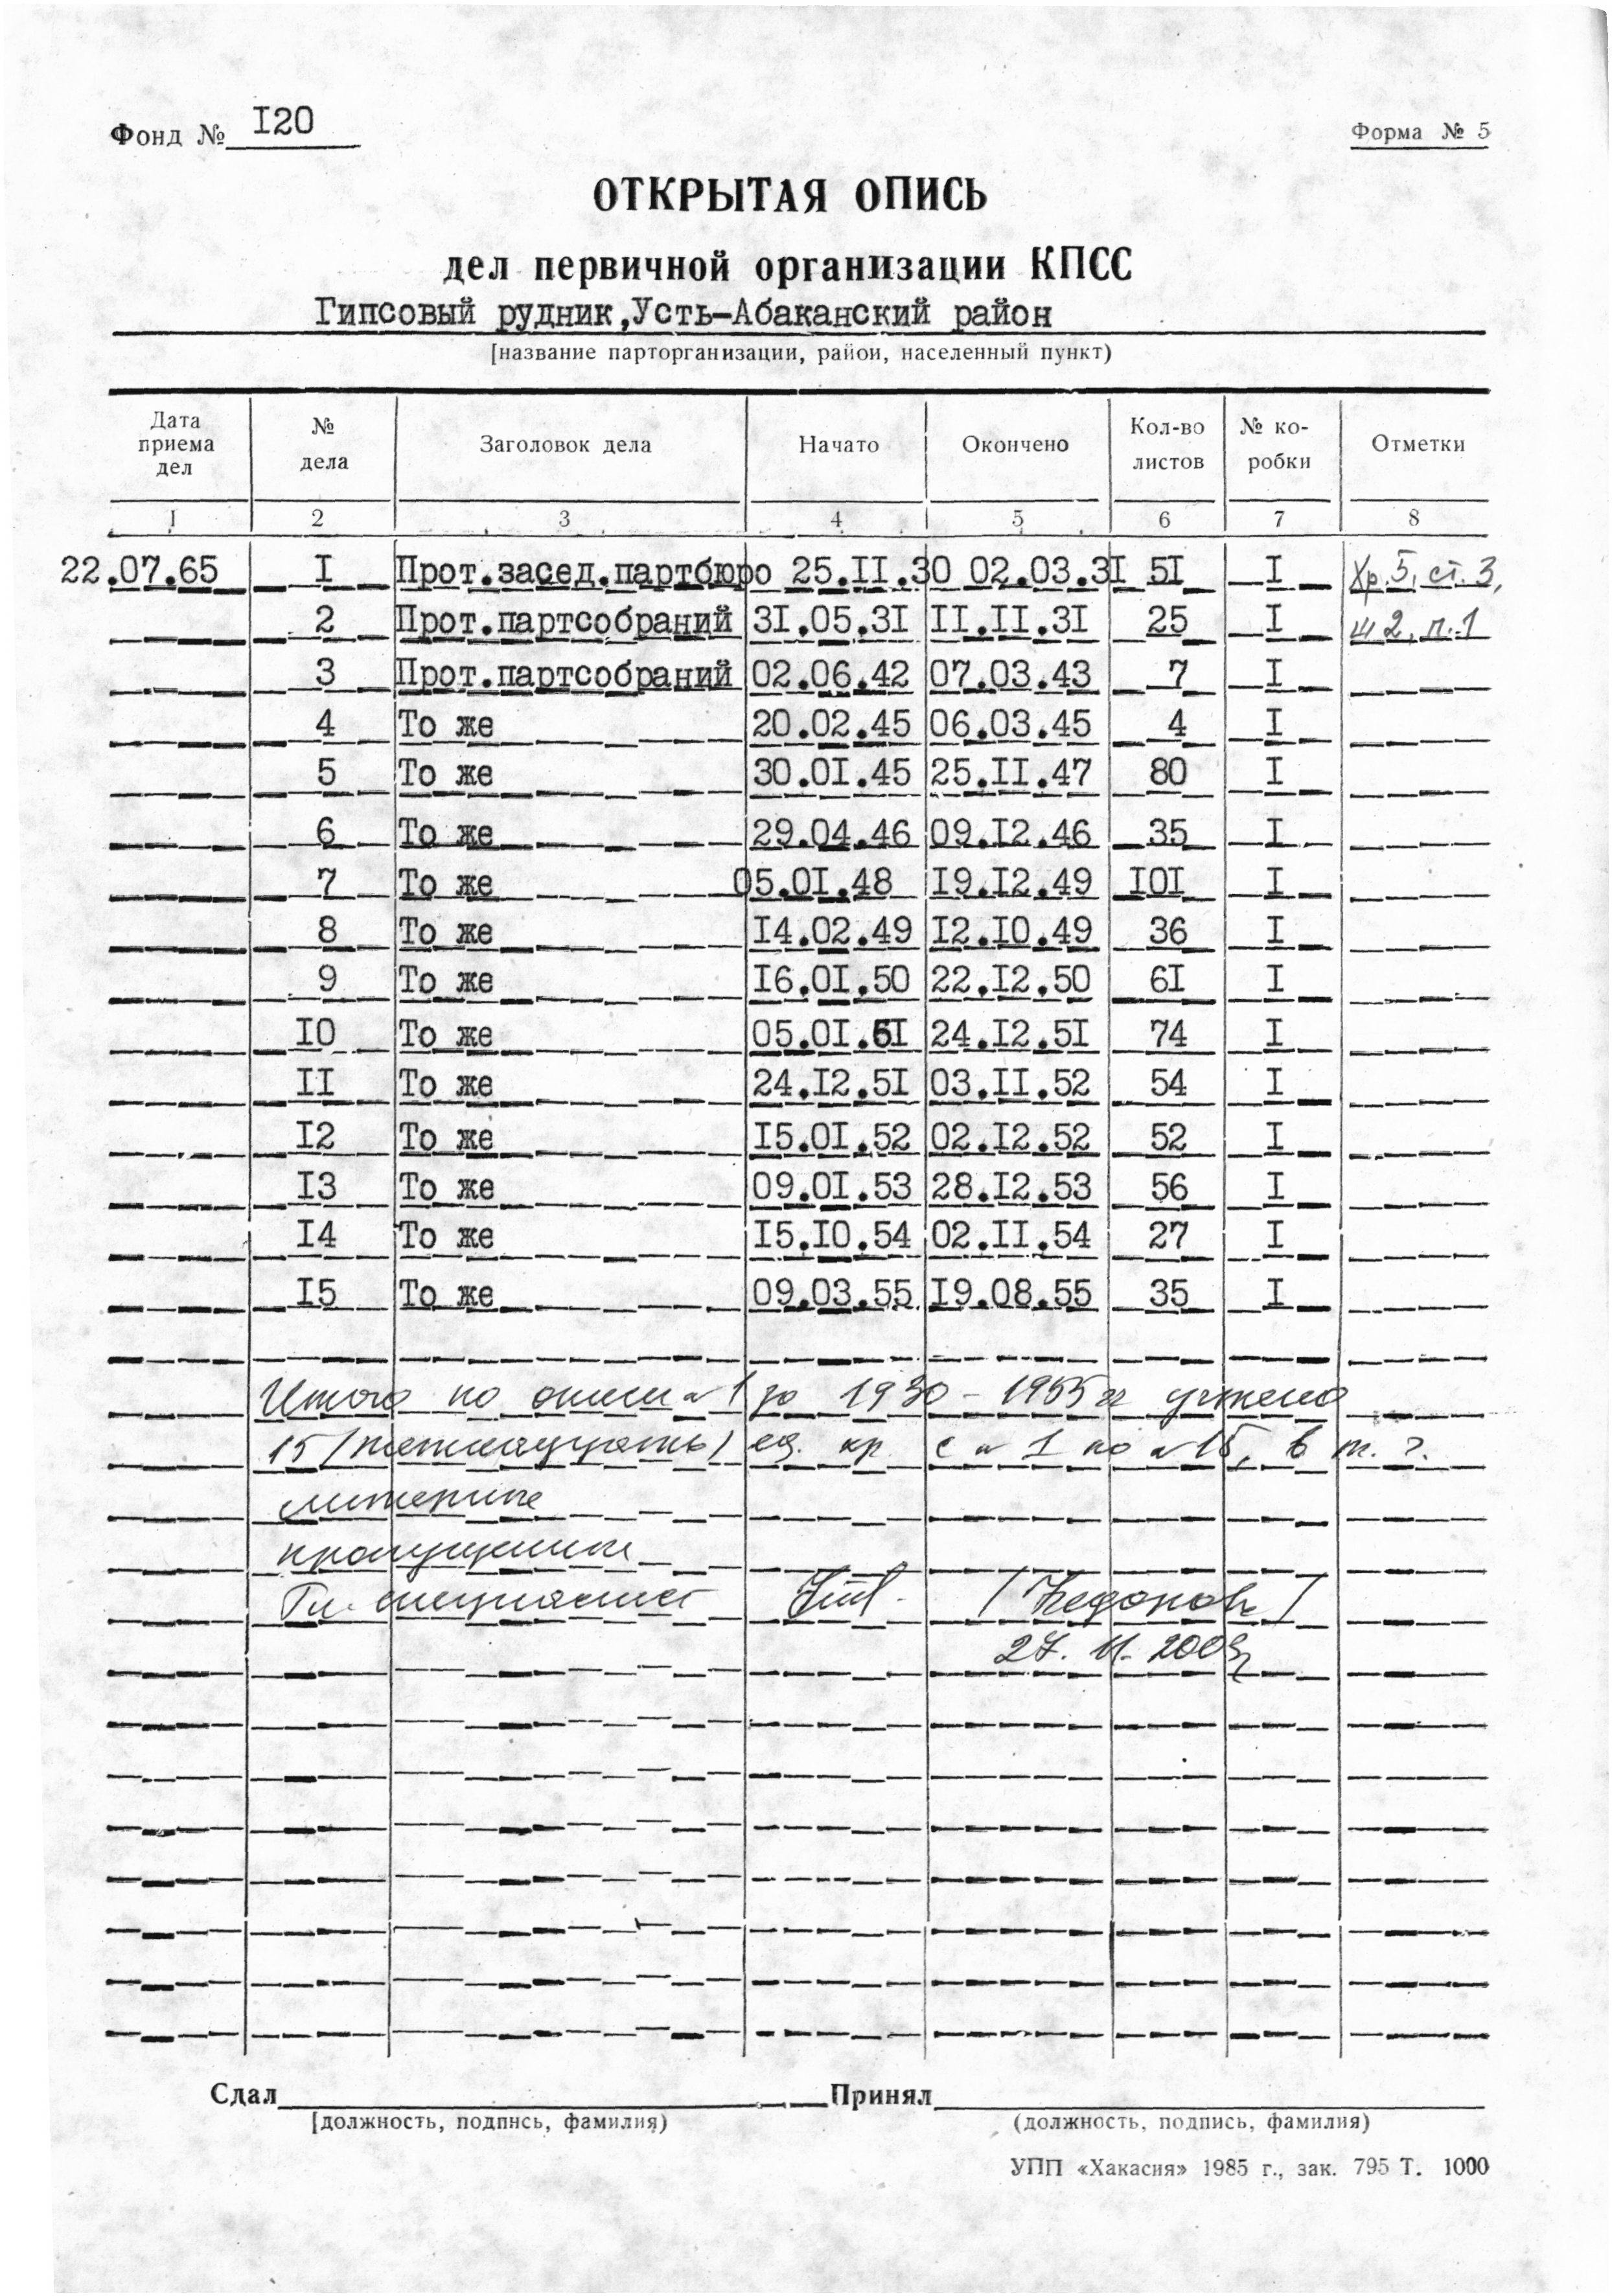 Фонд № I20
Форма № 5
ОТКРЫТАЯ ОПИСЬ
дел первичной организации КПСС
Гипсовый рудник,Усть-Абаканский район
[название парторганизации, район, населенный пункт)
Дата приема дел № дела Заголовок дела Начато Окончено Кол-во листов № ко-робки Отметки
1 2 3 4 5 6 7 8
22.07.65 I Прот.засед.партбюро 25.II.30 02.03.3I 5I I Хр.5, ст.3,
2 Прот.партсобраний 3I.05.3I II.II.3I 25 I ш 2, п.1
3 Прот.партсобраний 02.06.42 07.03.43 7 I
4 То же 20.02.45 06.03.45 4 I
5 То же 30.0I.45 25.II.47 80 I
6 То же 29.04.46 09.I2.46 35 I
7 То же 05.0I.48 I9.I2.49 I0I I
8 То же I4.02.49 I2.I0.49 36 I
9 То же I6.0I.50 22.I2.50 6I I
I0 То же 05.0I.5I 24.I2.5I 74 I
II То же 24.I2.5I 03.II.52 54 I
I2 То же I5.0I.52 02.I2.52 52 I
I3 То же 09.0I.53 28.I2.53 56 I
I4 То же I5.I0.54 02.II.54 27 I
I5 То же 09.03.55 I9.08.55 35 I
Итого по описи № 1 за 1930 - 1955 гг учтено
15 (пятнадцать) ед. хр. с № 1 по № 15, в т. ч.
литерные
пропущенные
Гл. специалист
27. 11. 2009
Сдал Принял
[должность, подпись, фамилия) (должность, подпись, фамилия)
УПП «Хакасия» 1985 г., зак. 795 Т. 1000